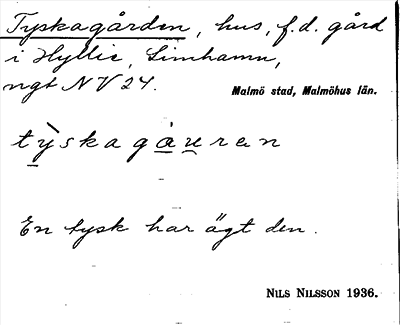 Tyskagården, hus, f.d. gård
i Hyllie, Limhamn,
ngt NV 24.
Malmö stad, Malmöhus län.
tỳskagáu̯ren
En tysk har ägt den.
NILS NILSSON 1936.